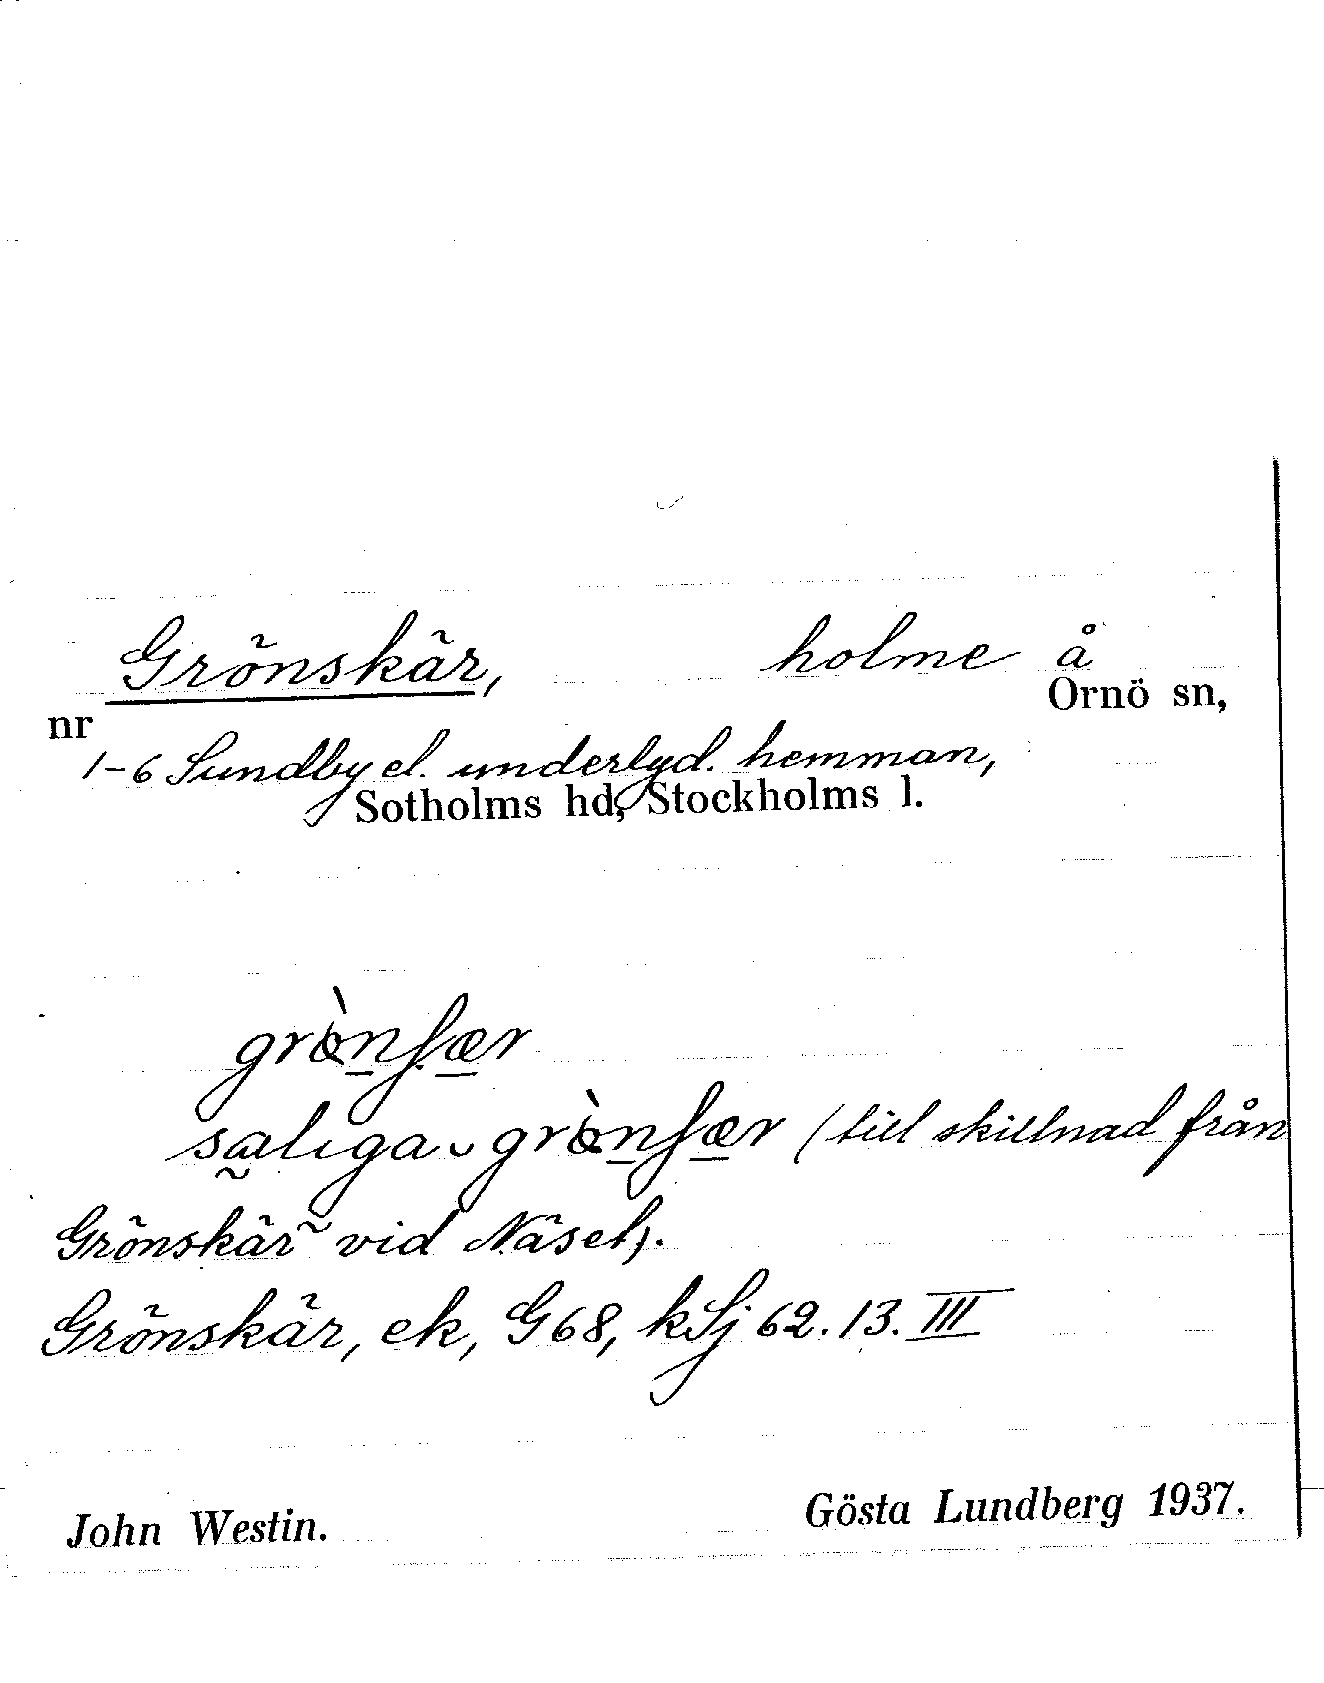 Grönskär, holme å
Ornö sn,
nr
1-6 Sundby el. underlyd. hemman,
Sotholms hd, Stockholms l.
grö̀nʃær
saliga grö̀nʃær (till skillnad från
Grönskär vid Näset).
Grönskär, ek, G68, kSj 62.13.III
John Westin. Gösta Lundberg 1937.